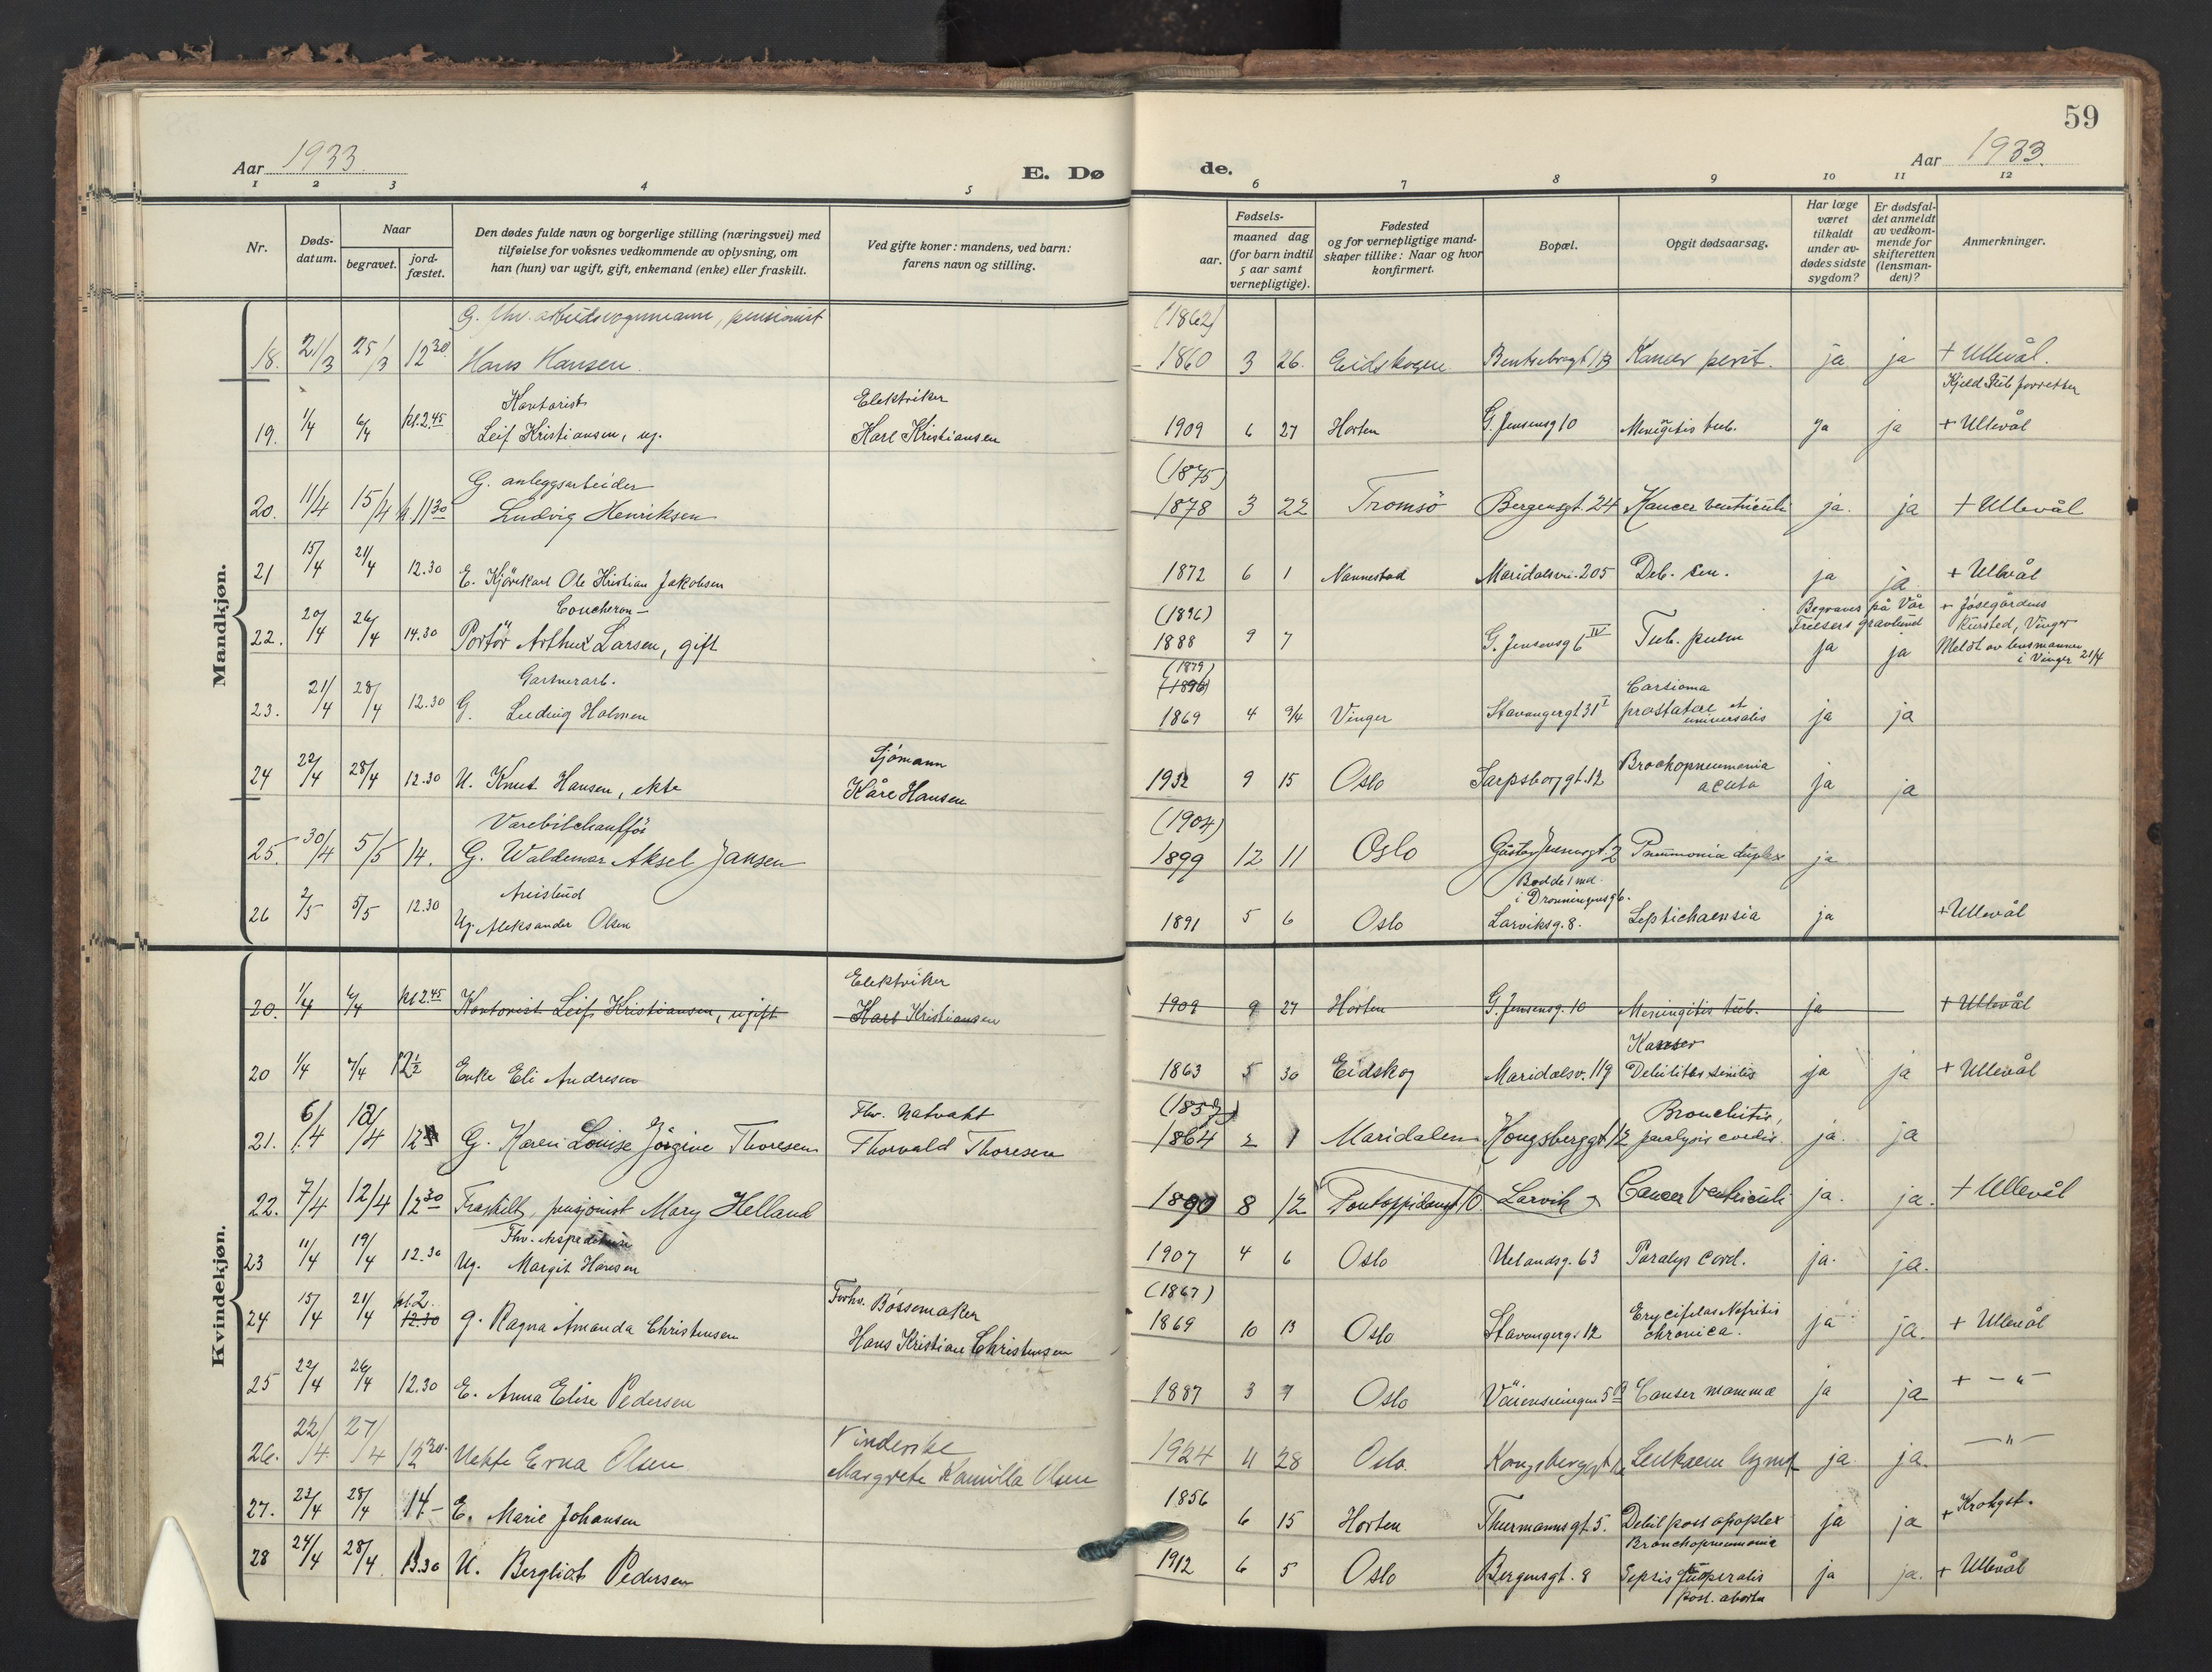 59
Aar 1933.
E. Døde.
Aar 1933.
1 2 3 4 5 6 7 8 9 10 11 12
Nr.
Døds-
datum.
Naar
begravet.
jord-
fæstet.
Den dødes fulde navn og borgerlige stilling (næringsvei) med
tilføielse for voksnes vedkommende av oplysning, om
han (hun) var ugift, gift, enkemand (enke) eller fraskilt.
Ved gifte koner: mandens, ved barn:
farens navn og stilling.
Fødsels-
aar.
maaned dag
(for barn indtil
5 aar samt
vernepligtige).
Fødested
og for vernepligtige mand-
skaper tillike: Naar og hvor
konfirmert.
Bopæl.
Opgit dødsaarsag.
Har læge
været
tilkaldt
under av-
dødes sidste
sygdom?
Er dødsfal-
det anmeldt
av vedkom-
mende for
skifteretten
(lensman-
den)?
Anmerkninger.
Mandkjøn.
G. fhv. arbeidsvognmann, pensionist (1862)
18. 21/3 25/3 12 30 Hans Hansen. 1860 3 26. Eidskogen Bentsebrogt 13 Kancer perit. ja ja + Ullevål.
Kjeld Stub forretter
Kontorist Elektriker
19. 1/4 6/4 kl. 2.45 Leif Kristiansen, ug. Karl Kristiansen 1909 6 27 Horten G. Jensensg 10 Menigitis tub. ja ja + Ullevål
G. anleggsarbeider (1875)
20. 11/4 15/4 kl. 11 30 Ludvig Henriksen 1878 3 22 Tromsö Bergensgt. 24 Kancer ventriculi ja. ja + Ullevål
21 15/4 21/4 12.30 E. Kjörekarl Ole Kristian Jakobsen 1872 6 1 Nannestad Maridalsvei. 205 Deb. sen. ja ja + Ullevål
Coucheron - (1896) Begraves på Vår + Jösegårdens
22. 20/4 26/4 14.30 Portör Arthur Larsen, gift 1888 9 7 G. Jensensg 6 IV Tub. pulm Frelsers gravlund kursted, Vinger
ja ja Meldt av lensmannen
i Vinger 21/4
Gartnerarb. (1879) (1896) Carsioma
23. 21/4 28/4 12.30 G. Ludvig Holmen 1869 4 9/4 Vinger Stavangergt 31 I prostatae et
universalis ja ja
Sjömann
24 22/4 28/4 12.30 U. Knut Hansen, ekte Kåre Hansen 1932 9 15 Oslo Sarpsborggt. 12 Brookopneumonia
acuta ja ja
Varebilchaufför (1904)
25. 30/4 5/5 14. G. Waldemar Aksel Jansen 1899 12 11 Oslo Gustav Jensensgt. 2 Pneumonia duplex ja
Bodde 1 md.
i Dronningensg 6.
26 2/5 5/5 12.30 Ug. Aleksander Olsen 1891 5 6 Oslo Larviksg. 8. Septichaemia ja + Ullevål
Kvindekjøn.
Elektriker
20. 1/4 6/4 kl 2.45 Kontorist Leif Kristiansen, ugift Karl Kristiansen 1909 9 27 Horten G. Jensensg. 10 Meningitis tub. ja + Ullevål
Kanser
20 1/4 7/4 12 1/2 Enke Eli Andresen 1863 5 30 Eidskog Maridalsv. 119 Debilitas senilis ja ja + Ullevål
Fhv. Natvakt Bronchitis,
21. 6/4 12/4 12 G. Karen Louise Jörgine Thoresen Thorvald Thoresen 1864 2 1 Maridalen Kongsberggt 12 paralysis cordis. ja. ja
22. 7/4 12/4 12 30 Fraskilt, pensjonist Mary Helland 1890 8 12 Pontoppidansgt 10 Larvik Cancer ventriculi ja. ja. + Ullevål
Fhv.
23 11/4 19/4 12.30 Ug. Margit Hansen 1907 4 6 Oslo Uelandsg. 63 Paralys cord. ja. ja.
kl. 2. Forhv. Bössemaker (1867) Erycipelas Nefritis
24 15/4 21/4 12.30 g. Ragna Amanda Christensen Hans Kristian Christensen 1869 10 13 Oslo Stavangerg. 12 chronica. ja ja. + Ullevål
25 22/4 26/4 12.30 E. Anna Elise Pedersen 1887 3 7 Oslo Canser mamma ja ja + - " -
26. 22/4 27/4 12 30. Uekte Erna Olsen Margrete Kamilla Olsen 1924 11 28 Oslo. Kongsberggt Leukaem lymf ja ja. - " -
27. 23/4 28/4 14 - E. Marie Johansen 1856 6 15 Horten Thurmannsgt. 5. Debil post apoplex ja ja + Krohgst.
Bronchopneumonia
28 24/4 28/4 13.30 U. Bergliot Pedersen 1912 6 5 Oslo Bergensgt. 8 Sepsis puoperalis
post. abortu ja ja. + Ullevål